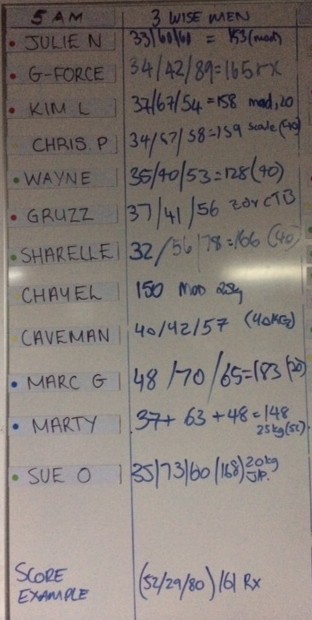 5 AM 3 WISE MEN
JULIE N 33/60/60 = 153 (mod)
G-FORCE 34/42/89=165 rx
KIM L 37/67/54=158 mod, 20
CHRIS. P 34/67/58=159 scale (40)
WAYNE 35/40/53=128 (40)
GRUZZ 37/41/56 CTB
SHARELLE 32/56/78=166 (40)
CHAYEL 150 mod 25kg
CAVEMAN 40/42/57 (40KG)
MARC G 48/70/65=183 (20)
MARTY 37+ 63 +48=148
25kg (52)
SUE O 35/73/60 (168) 20kg
SCORE EXAMPLE (52/29/80) 161 Rx